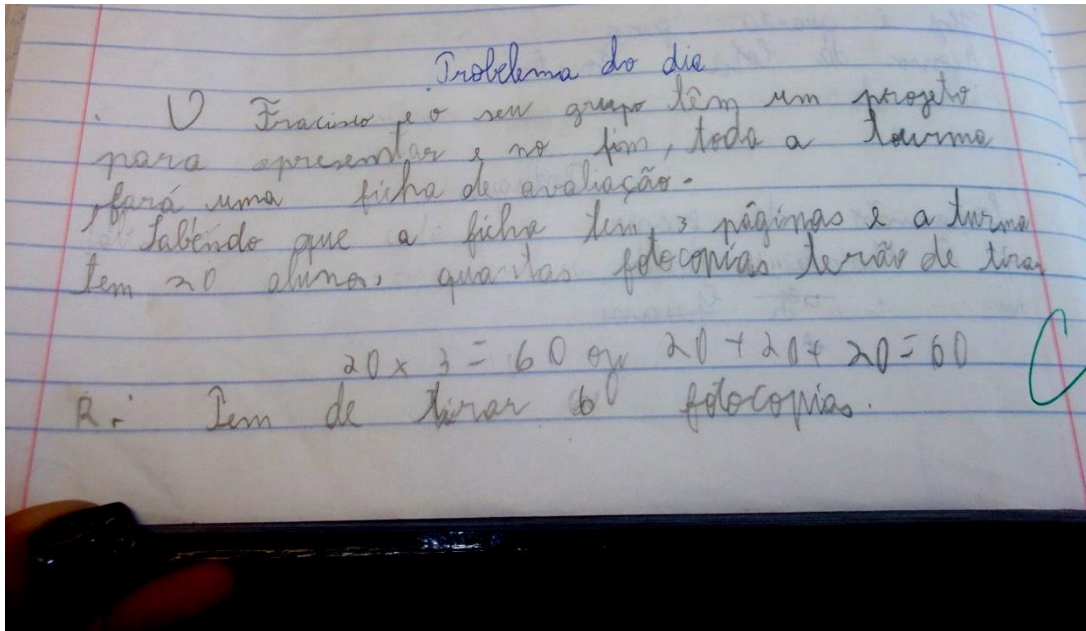 Probelema do dia
O Fracisco e o seu grupo têm um projeto
para apresentar e no fim, toda a tourma
fará uma ficha de avaliação.
Sabendo que a ficha tem 3 páginas e a turma
tem 20 alunos, quantas fotocopias terão de tirar
20 x 3 = 60 ou 20 + 20 + 20 = 60
R.: Tem de tirar 60 fotocopias.
C